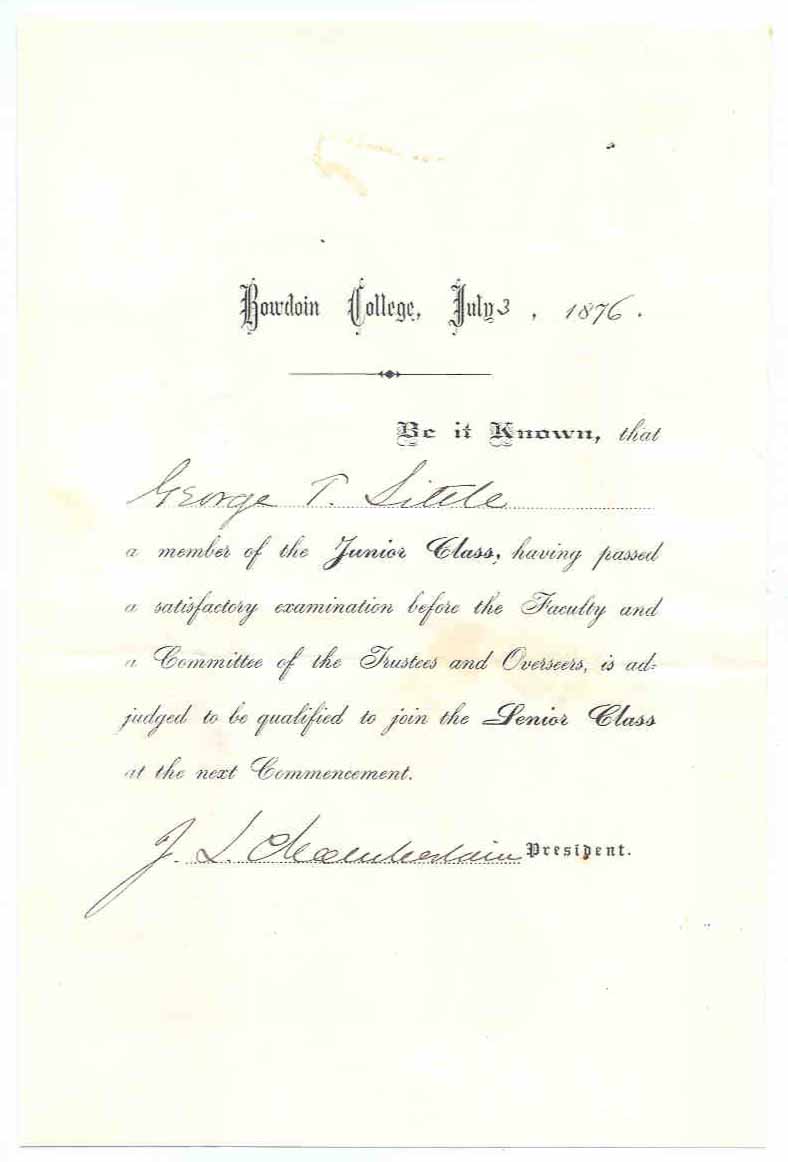 Bowdoin College, July 3, 1876.
Be it Known, that
George T. Little
a member of the Junior Class, having passed
a satisfactory examination before the Faculty and
a Committee of the Trustees and Overseers, is ad-
judged to be qualified to join the Senior Class
at the next Commencement.
J. L. Chamberlain President.